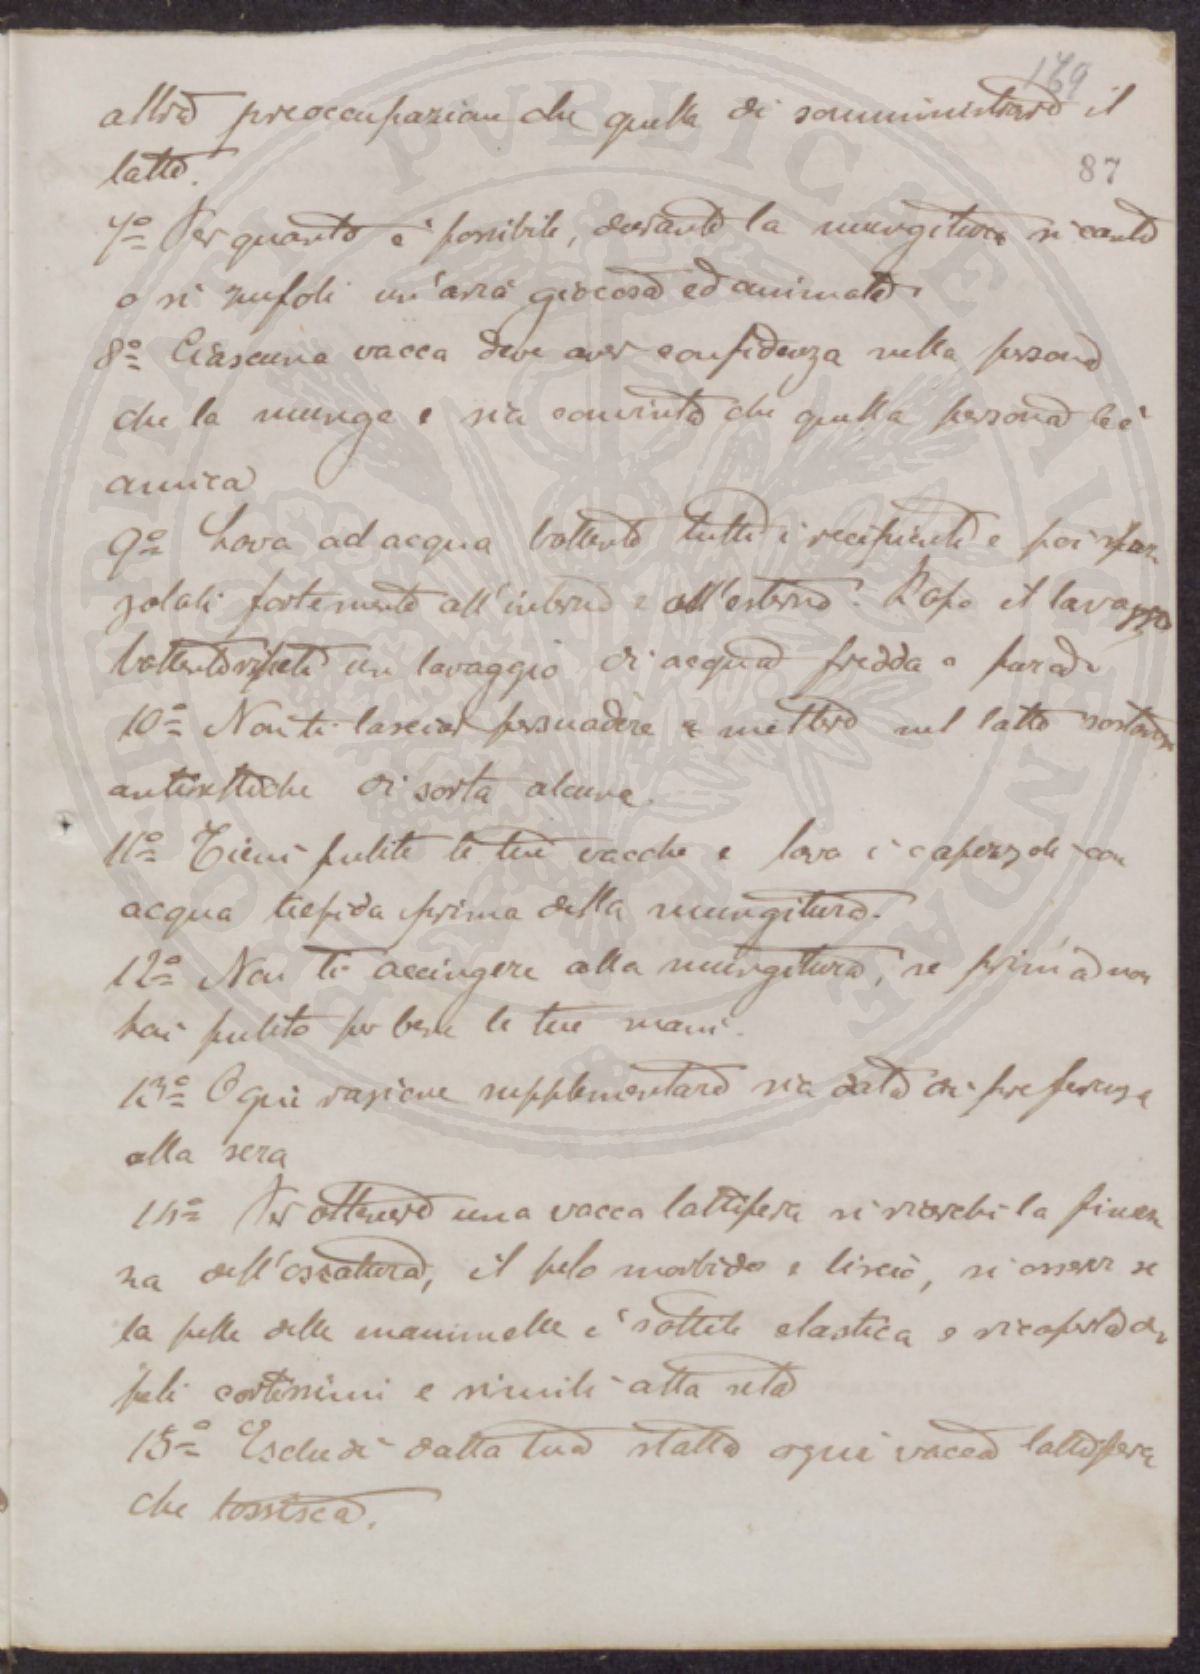 169
altra preoccupazione che quella di somministrare il
latte.
87
7º Per quanto è possibile, durante la mungitura si canti
o si zufoli un'aria giocosa ed animata.
8º Ciascuna vacca deve aver confidenza nella persona
che la munge e sia convinta che quella persona le è
amica
9º Lava ad acqua bollente tutti i recipienti e poi spaz
zolali fortemente all'interno e all'esterno. Dopo il lavaggio
bollente ripeti un lavaggio di acqua fredda e pura.
10º Non ti lasciar persuadere a mettere nel latte sostanze
antisettiche di sorta alcuna.
11º Tieni pulite le tue vacche e lava i capezzoli con
acqua tiepida prima della mungitura.
12º Non ti accingere alla mungitura, se prima non
hai pulito per bene le tue mani.
13º Ogni razione supplementare sia data di preferenza
alla sera
14º Per ottenere una vacca lattifera si ricerchi la finez
za dell'ossatura, il pelo morbido e liscio, si osservi se
la pelle delle mammelle è sottile elastica e ricoperta di
peli cortissimi e simili alla seta
15º Escludi dalla tua stalla ogni vacca lattifera
che tossisca.